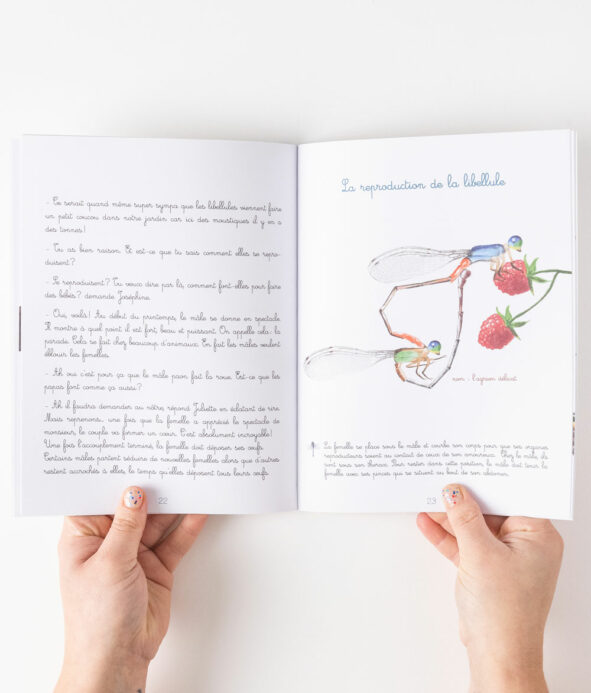 - Ce serait quand même super sympa que les libellules viennent faire
un petit coucou dans notre jardin car ici des moustiques il y en a
des tonnes!
- Tu as bien raison. Et est-ce que tu sais comment elles se repro-
duisent?
- Se reproduisent? Tu veux dire par là, comment font-elles pour faire
des bébés? demande Joséphine.
- Oui, voilà! Au début du printemps, le mâle se donne en spectacle.
Il montre à quel point il est fort, beau et puissant. On appelle cela: la
parade. Cela se fait chez beaucoup d'animaux. En fait les mâles veulent
éblouir les femelles.
- Ah oui c'est pour ça que le mâle paon fait la roue. Est-ce que les
papas font comme ça aussi?
- Ah il faudra demander au nôtre, répond Juliette en éclatant de rire.
Mais reprenons... une fois que la femelle a apprécié le spectacle de
monsieur, le couple va former un cœur. C'est absolument incroyable!
Une fois l'accouplement terminé, la femelle doit déposer ses œufs.
Certains mâles partent séduire de nouvelles femelles alors que d'autres
restent accrochés à elles, le temps qu'elles déposent tous leurs œufs.
22
La reproduction de la libellule
nom : l'agrion délicat
La femelle se place sous le mâle et courbe son corps pour que ses organes
reproducteurs soient au contact de ceux de son amoureux. Chez le mâle, ils
sont sous son thorax. Pour rester dans cette position, le mâle doit tenir la
femelle avec ses pinces qui se situent au bout de son abdomen.
23